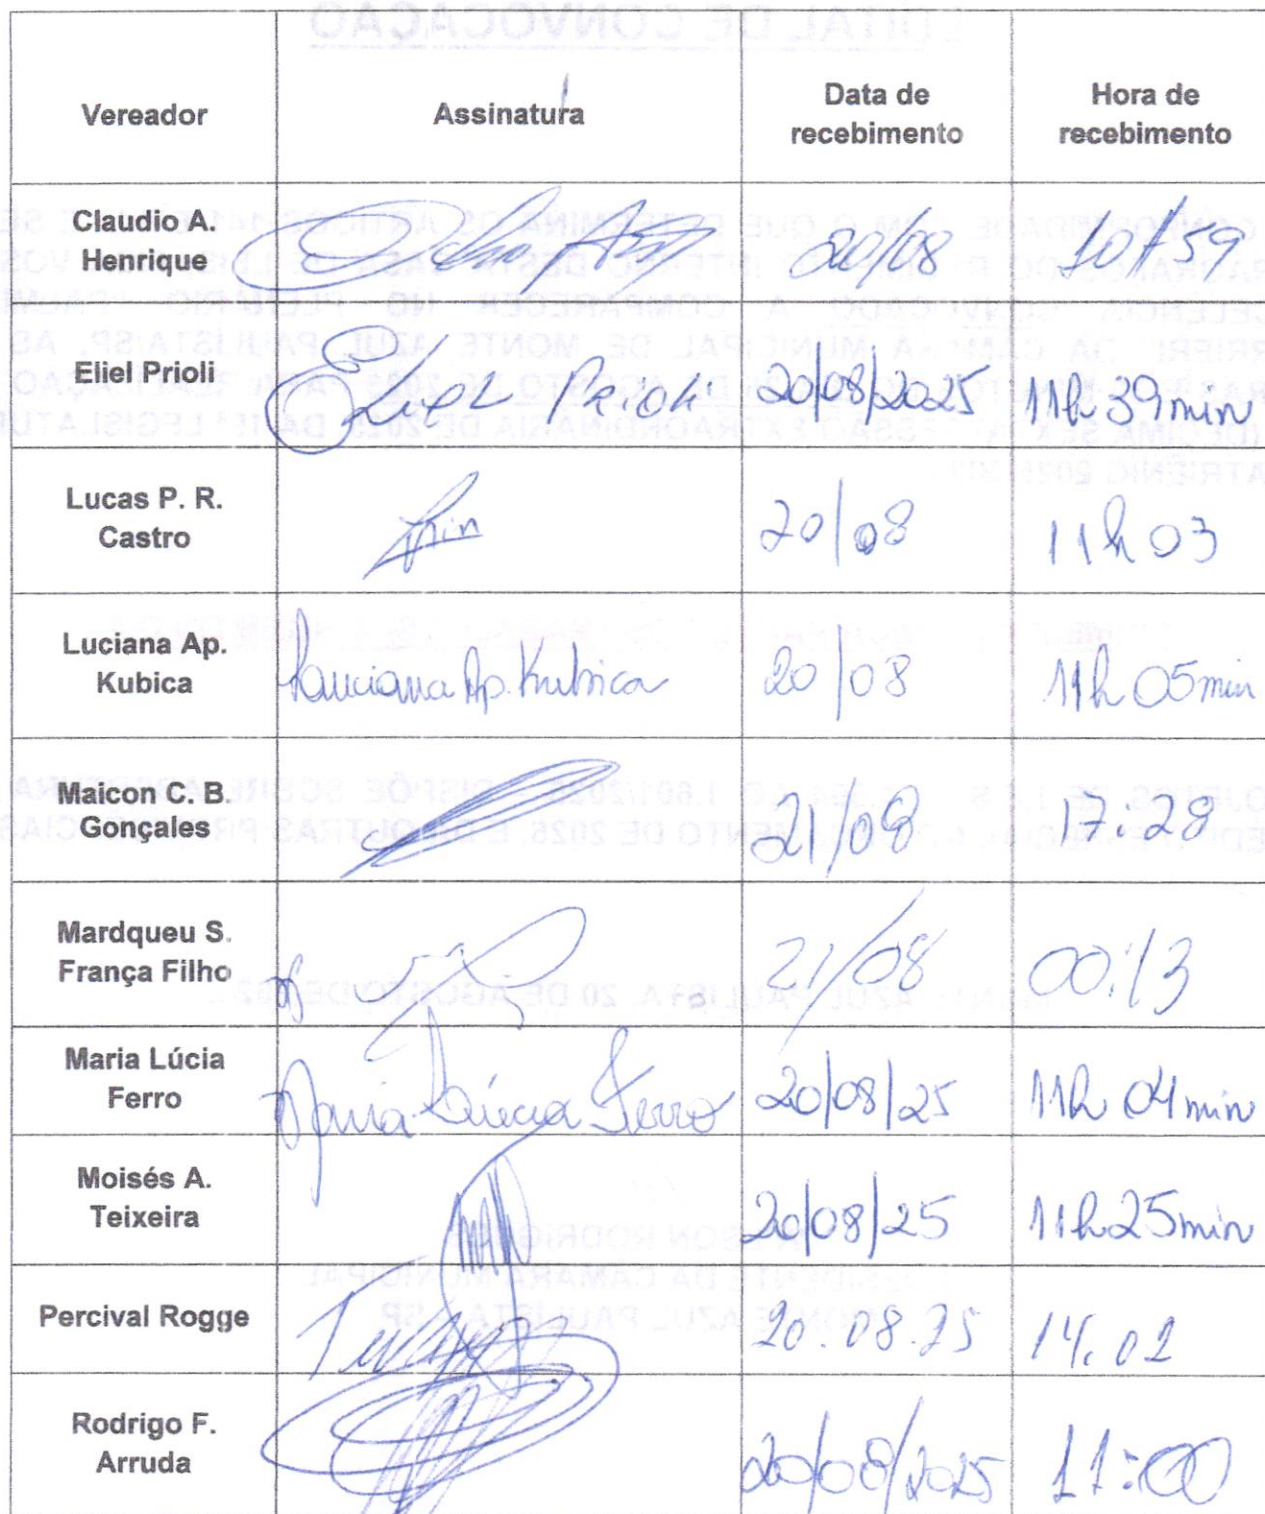 Vereador
Assinatura
Data de
recebimento
Hora de
recebimento
Claudio A.
Henrique
20/08
10h59
Eliel Prioli
Eliel Prioli
20/08/2025
11h39min
Lucas P. R.
Castro
20/08
11h03
Luciana Ap.
Kubica
Luciana Ap. Kubica
20/08
11h05min
Maicon C. B.
Gonçales
21/08
17:28
Mardqueu S.
França Filho
21/08
00:13
Maria Lúcia
Ferro
Maria Lúcia Ferro
20/08/25
11h04min
Moisés A.
Teixeira
20/08/25
11h25min
Percival Rogge
20.08.25
14:02
Rodrigo F.
Arruda
20/08/2025
11:00